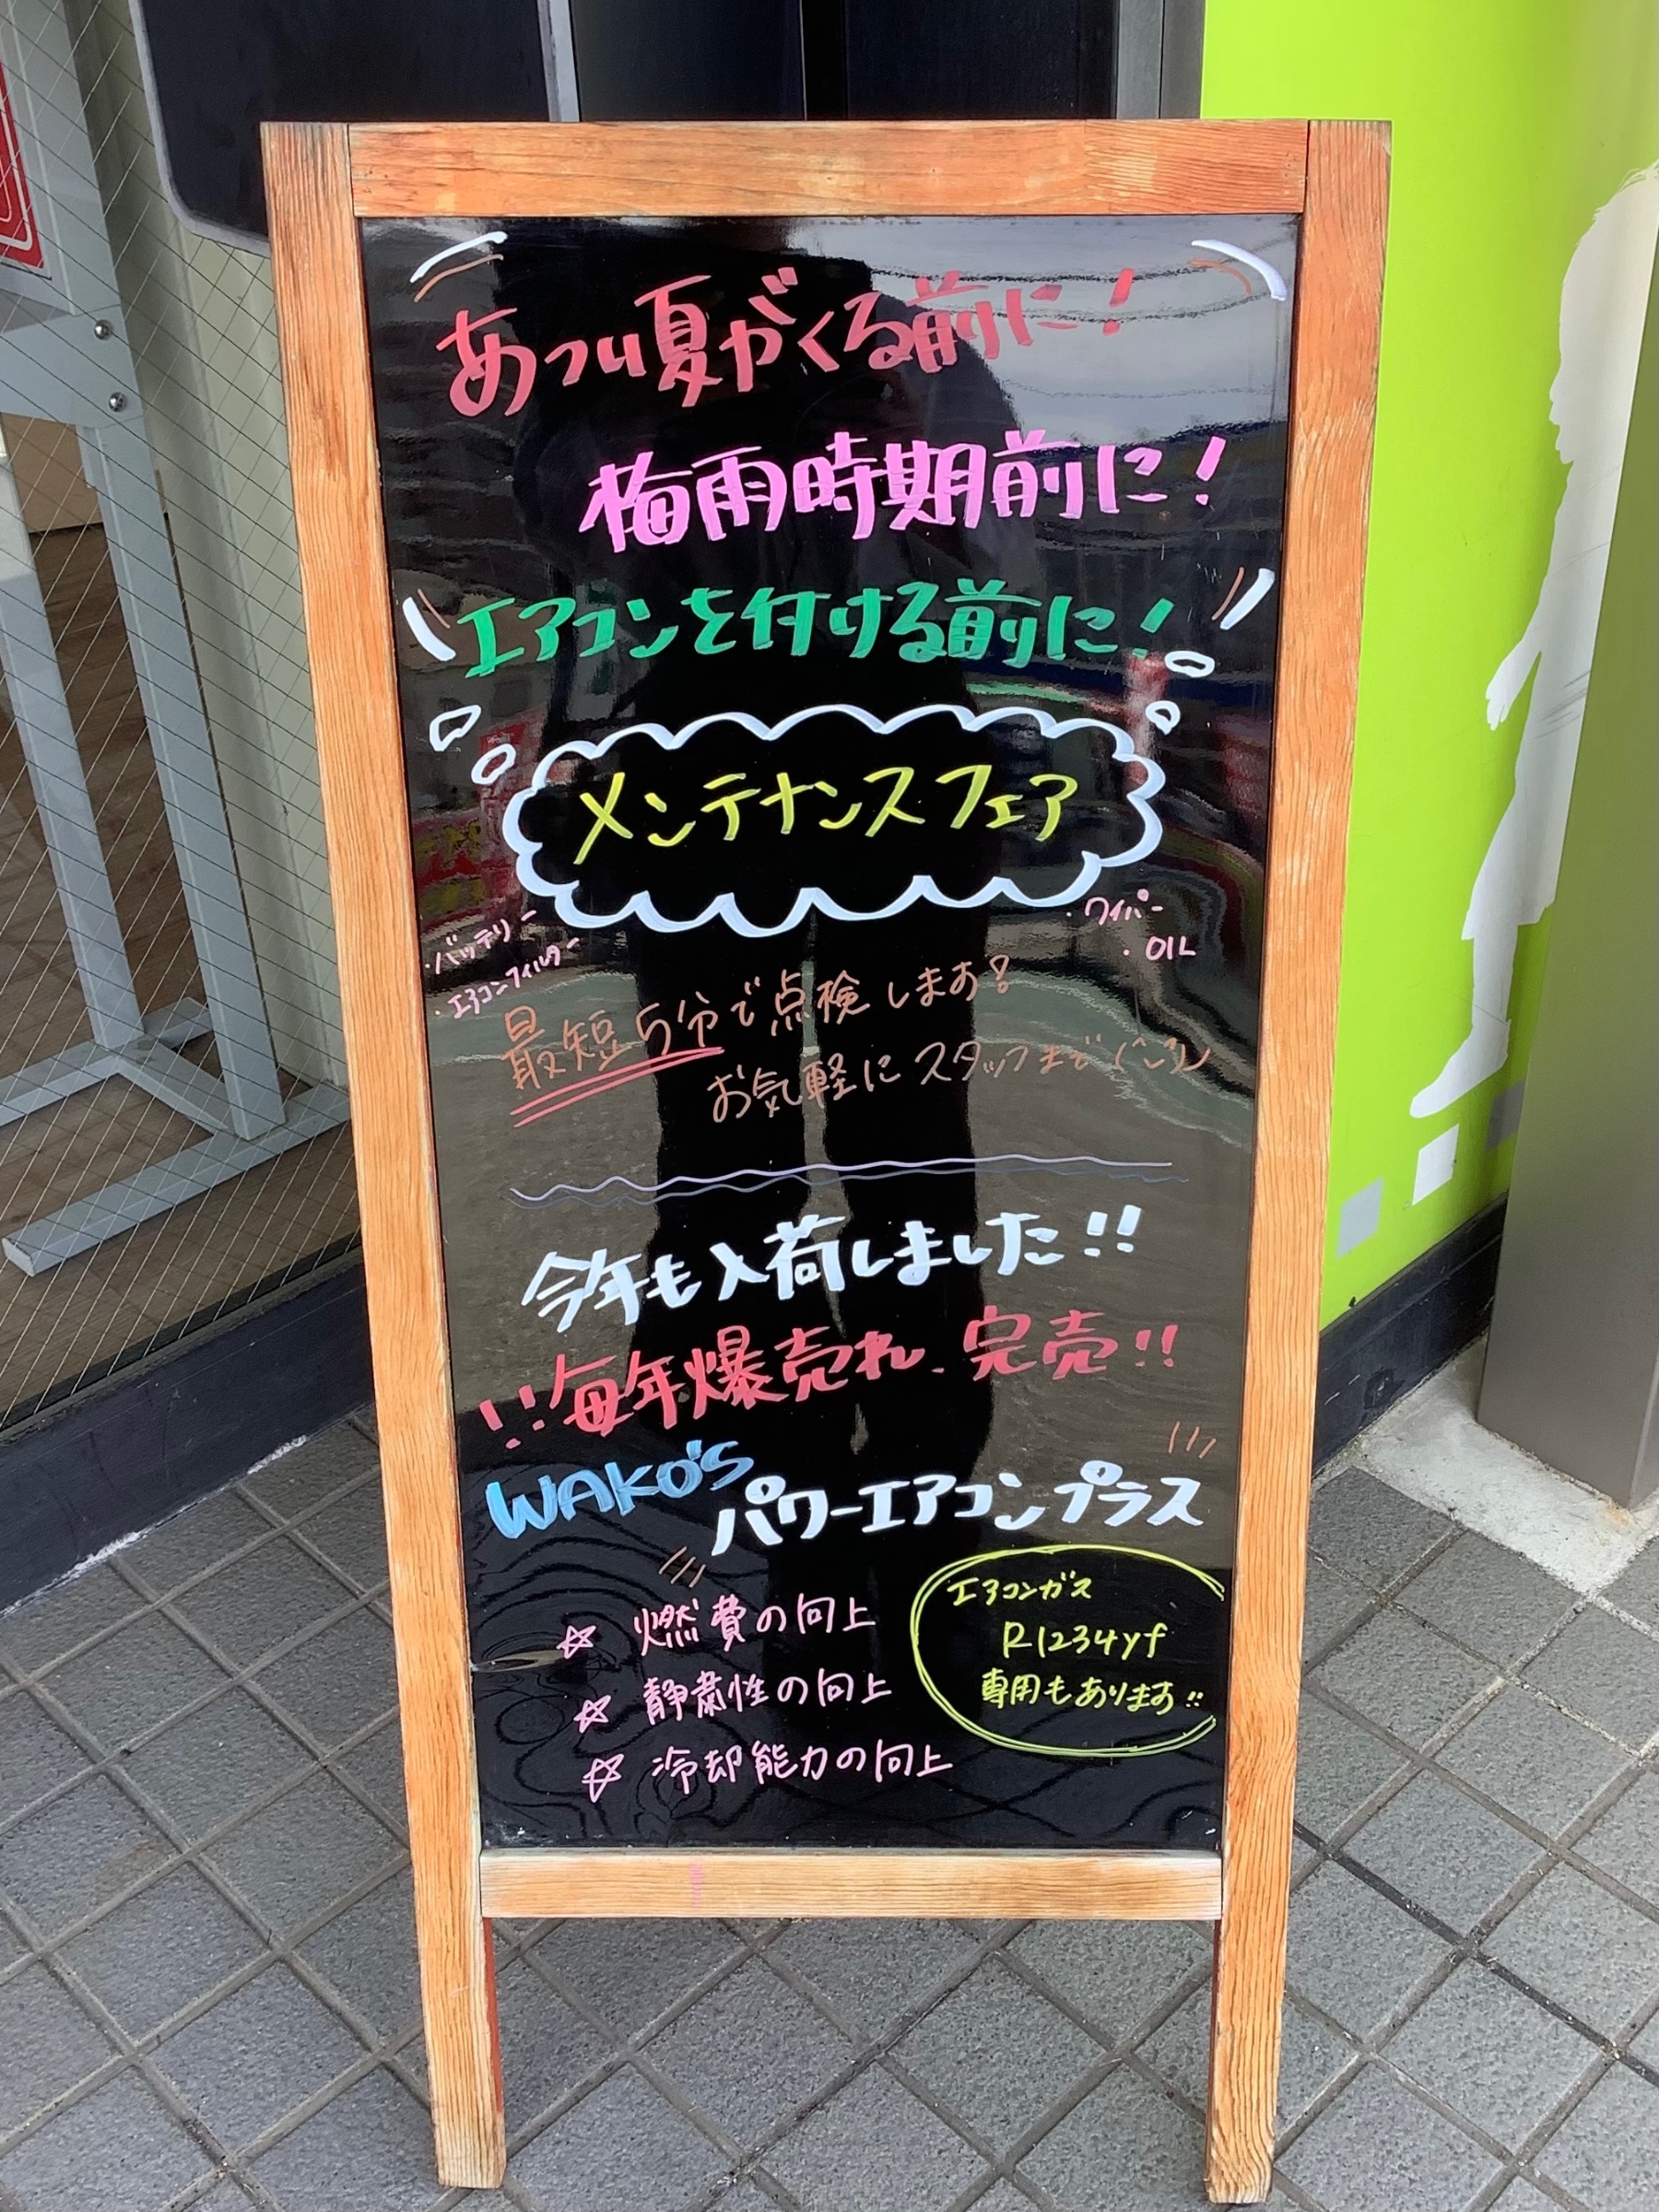 あつい夏がくる前に!
梅雨時期前に!
エアコンを付ける前に!
メンテナンスフェア
・バッテリー
・エアコンフィルター
・ワイパー
・OIL
最短5分で点検します!
お気軽にスタッフまで
今年も入荷しました!!
!!毎年爆売れ、完売!!
WAKO'S
パワーエアコンプラス
☆ 燃費の向上
☆ 静粛性の向上
☆ 冷却能力の向上
エアコンガス
R1234yf
専用もあります!!